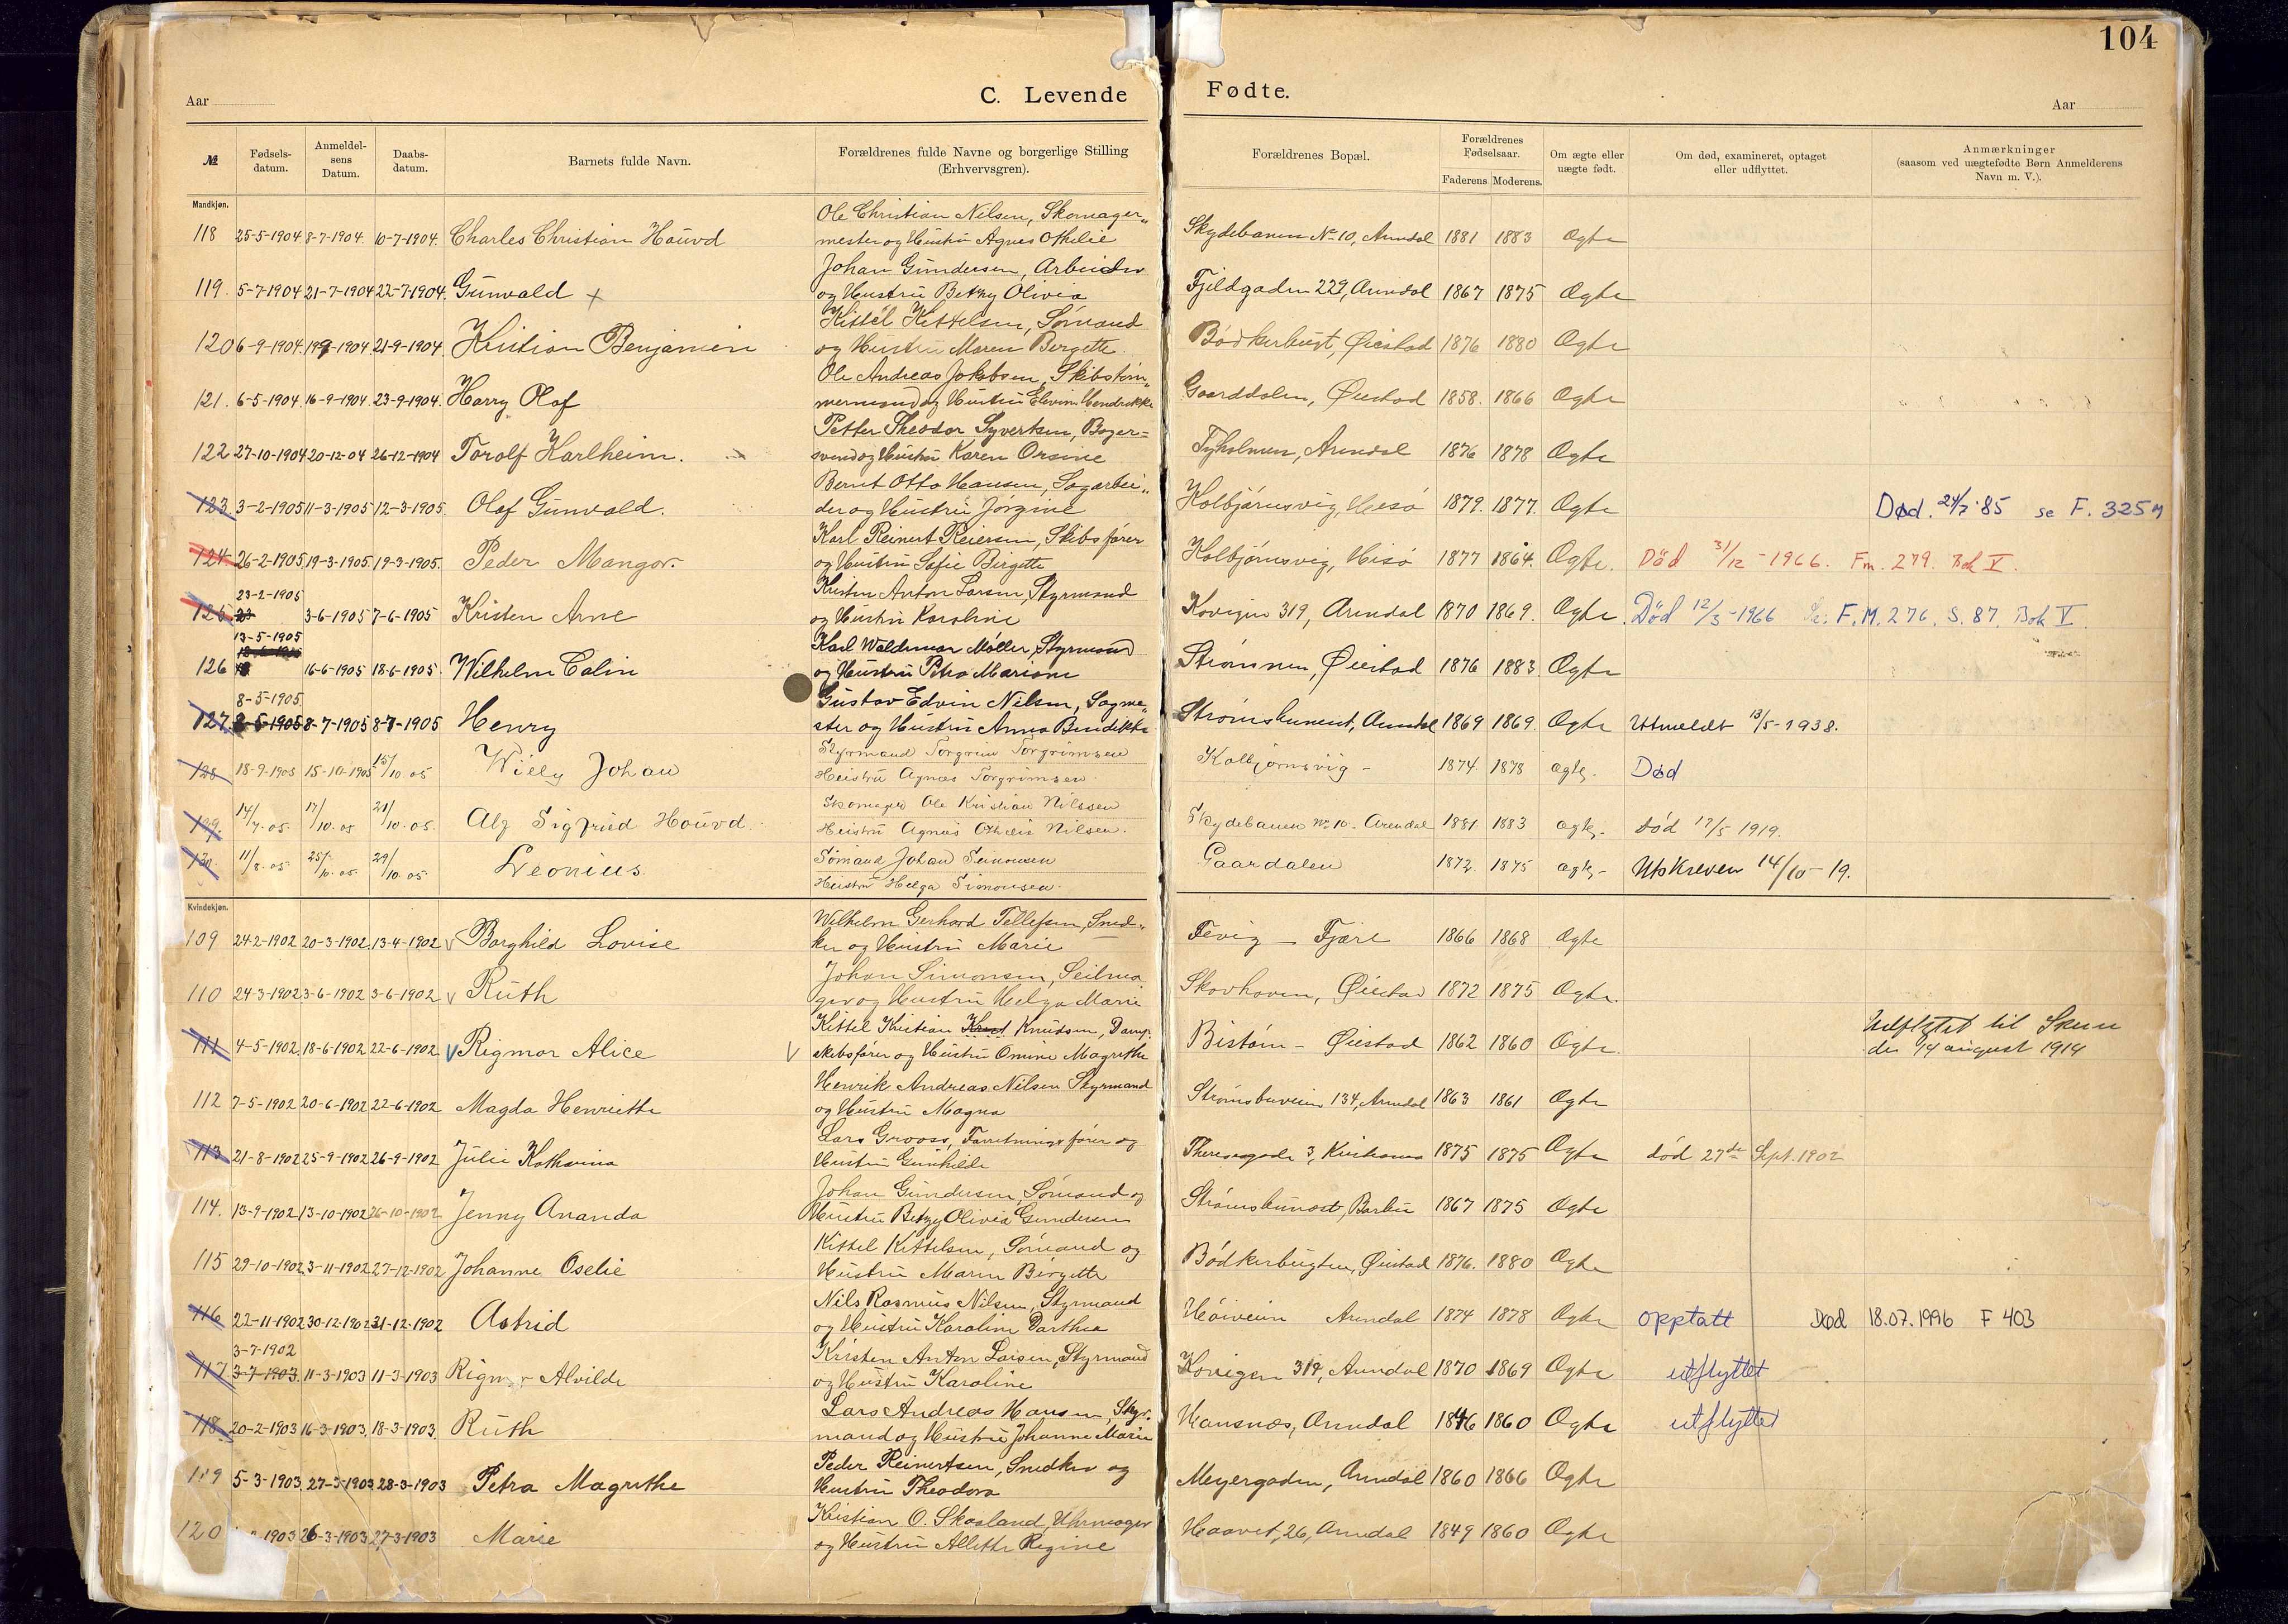 104
Aar
C. Levende Fødte.
Aar
№
Fødsels-
datum.
Anmeldel-
sens
Datum.
Daabs-
datum.
Barnets fulde Navn.
Forældrenes fulde Navne og borgerlige Stilling
(Erhvervsgren).
Forældrenes Bopæl.
Forældrenes
Fødselsaar.
Faderens Moderens.
Om ægte eller
uægte født.
Om død, examineret, optaget
eller udflyttet.
Anmærkninger
(saasom ved uægtefødte Børn Anmelderens
Navn m. V.).
Mandkjøn.
Ole Christian Nilsen, Skomager„
118 25-5-1904 8-7-1904. 10-7-1904. Charles Christian Houvd mester og Hustru Agnes Othelie Skydebanen No 10, Arendal 1881 1883 Ægte
Johan Gundersen, Arbeider
119. 5-7-1904 21-7-1904 22-7-1904. Gunvald x og Hustru Betzy Olivia Fjeldgaden 229, Arendal 1867 1875 Ægte
Kittel Kittelsen, Sømand
120 6-9-1904. 19-9-1904 21-9-1904. Kristian Benjamin og Hustru Maren Bergette Bødkerbugt, Øiestad 1876 1880 Ægte
Ole Andreas Jakobsen, Skibstøm„
121. 6-5-1904. 16-9-1904. 23-9-1904. Harry Olaf mermand og Hustru Elevine Hendrikke Gaarddalen, Øiestad 1858. 1866 Ægte
Petter Theodor Syvertsen, Bager=
122 27-10-1904 20-12-04 26-12-1904 Torolf Karlheim. svend og Hustru Karen Orsine Tyholmen, Arendal 1876 1878 Ægte
Bernt Otto Hansen, Sagarbei„
123. 3-2-1905 11-3-1905 12-3-1905. Olaf Gunvald. der og Hustru Jørgine Kolbjørnsvig, Hisø 1879. 1877. Ægte Død. 24/7-85 se F. 325 M
Karl Reinert Reiersen, Skibsfører
124. 26-2-1905 19-3-1905. 19-3-1905. Peder Mangor. og Hustru Sofie Birgette Kolbjørnsvig, Hisø 1877 1864. Ægte. Död 31/12-1966. Fm. 279. Bok V.
23-2-1905
Kristen Anton Larsen, Styrmand
125. 3-6-1905 7-6-1905 Kristen Arne og Hustru Karoline Kovigen 319, Arendal 1870 1869. Ægte. Död 12/3-1966 Se: F.M. 276. S. 87. Bok V.
13-5-1905
Karl Waldemar Møller, Styrmand
126 16-6-1905 18-6-1905. Wilhelm Calin og Hustru Petra Mariane Strømmen, Øiestad 1876 1883 Ægte
8-5-1905.
Gustav Edvin Nilsen, Sagme„
127. 8-5-1905 8-7-1905 8-7-1905 Henry ster og Hustru Anna Bendikke Strømsbunest, Arendal 1869 1869. Ægte Utmeldt 13/5-1938.
Styrmand Torgrim Torgrimsen
128 18-9-1905 15-10-1905 15/10.05 Willy Johan Hustru Agnes Torgrimsen. Kolbjørnsvig - 1874. 1878 ægte. Død
Skomager Ole Kristian Nilssen
129. 14/7.05. 17/10.05 21/10.05. Alf Sigfried Houvd. Hustru Agnes Othelie Nilsen. Skydebanen No 10 - Arendal 1881. 1883 ægte. død 17/5 1919.
Sømand Johan Simonsen
130. 11/8.05. 25/10.05. 29/10.05 Leonius. Hustru Helga Simonsen. Gaardalen 1872. 1875 ægte - Utskreven 14/10-19.
Kvindekjøn.
Wilhelm Gerhard Tellefsen, Sned„
109 24-2-1902 20-3-1902. 13-4-1902 v Borghild Lovise ker og Hustru Marie Fevig - Fjære 1866 1868 Ægte
Johan Simonsen, Seilma
110 24-3-1902 3-6-1902 3-6-1902 v Ruth ger og Hustru Helga Marie Skovhaven, Øiestad 1872 1875 Ægte.
Kittel Kristian Knudsen, Damp-
111. 4-5-1902. 18-6-1902 22-6-1902. v Rigmor Alice v skibsfører og Hustru Omine Magrethe Bistøin - Øiestad 1862 1860 Ægte. Udflyttet til Skien
den 14 august 1914
Henrik Andreas Nilsen Styrmand
112 7-5-1902 20-6-1902 22-6-1902 Magda Henriette og Hustru Magna Strømsbuveien 134, Arendal 1863 1861 Ægte
Lars Grooss, Forretningsfører og
113. 21-8-1902 25-9-1902 26-9-1902 Julie Katharina Hustru Gunhilde Theresesgade 3, Kristiania 1875 1875 Ægte død 27de Sept. 1902
Johan Gundersen, Sømand og
114. 13-9-1902 13-10-1902 26-10-1902 Jenny Ananda Hustru Betzy Olivia Gundersen Strømsbunæst, Barbu 1867 1875 Ægte
Kittel Kittelsen, Sømand og
115 29-10-1902. 3-11-1902 27-12-1902 Johanne Oselie Hustru Maren Birgette Bødkerbugten, Øiestad 1876. 1880 Ægte
Nils Rasmus Nilsen, Styrmand
116 22-11-1902 30-12-1902 31-12-1902 Astrid og Hustru Karoline Darthea Høiveien Arendal 1874 1878 Ægte opptatt Død 18.07.1996 F 403
3-7-1902
Kristen Anton Larsen, Styrmand
117 3-7-1903. 11-3-1903 11-3-1903 Rigmor Alvilde og Hustru Karoline Kovigen 319, Arendal 1870 1869 Ægte utflyttet
Lars Andreas Hansen, Styr-
118. 20-2-1903 16-3-1903. 18-3-1903. Ruth mand og Hustru Johanne Marie Hansnæs, Arendal 1846 1860 Ægte utflyttet
Peder Reinertsen, Snedker og
119 5-3-1903. 27-3-1903 28-3-1903 Petra Magrethe Hustru Theodora Meyergaden, Arendal 1860 1866 Ægte
Kristian O. Skaaland, Uhrmager
120 1903 26-3-1903 27-3-1903 Marie og Hustru Allette Regine Haavet, 26, Arendal 1849 1860 Ægte